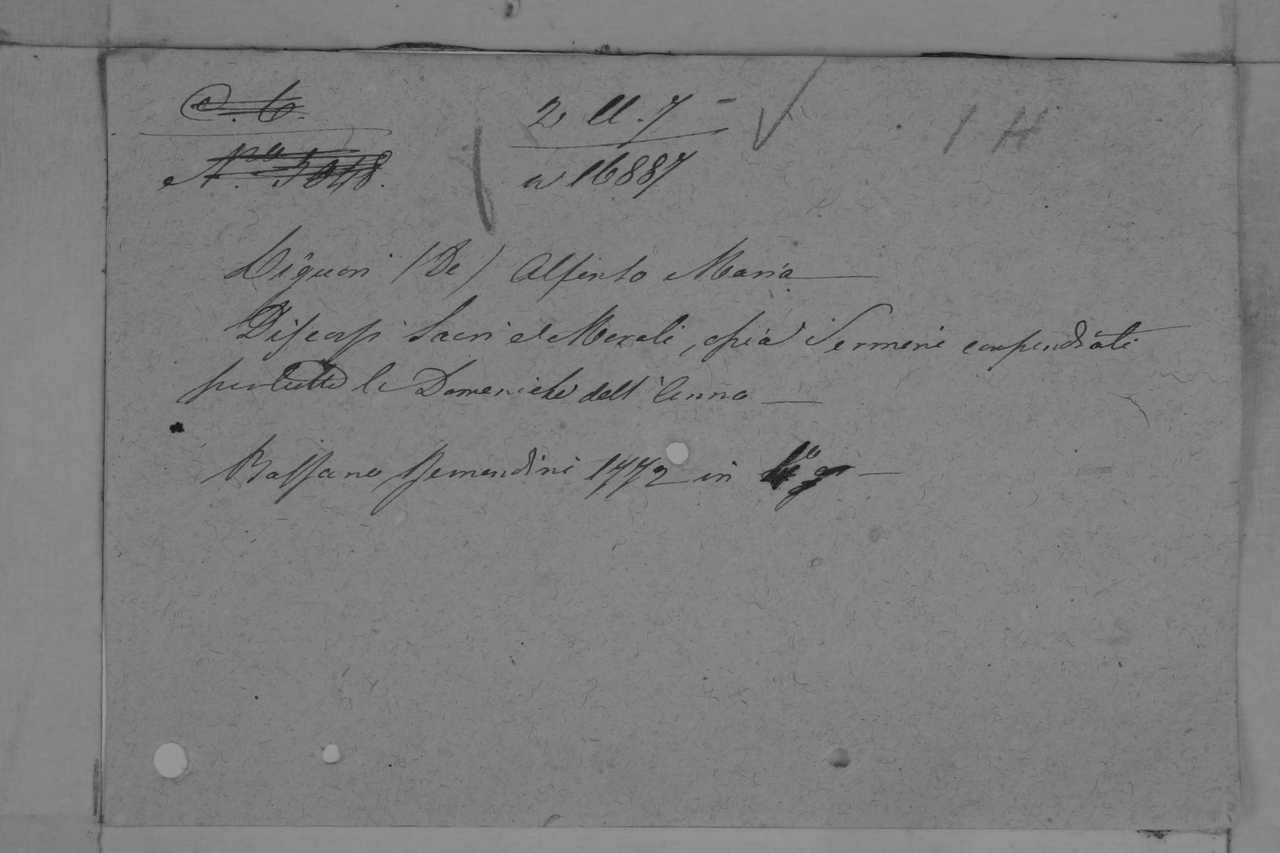 C. C.
N.ro 5048.
2 ll. 7
a 16887
1 H
Liguori (De) Alfonso Maria
Discorsi Sacri e Morali, ossia Sermoni compendiati
per tutte le Domeniche dell'Anno
Bassano Remondini 1772 in